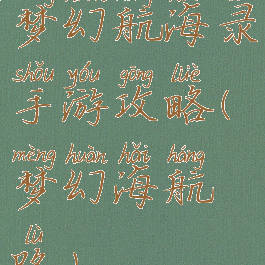 梦幻航海录
shǒu yóu gōng lüè
手游攻略(
mèng huàn hǎi háng
梦幻海航
lù